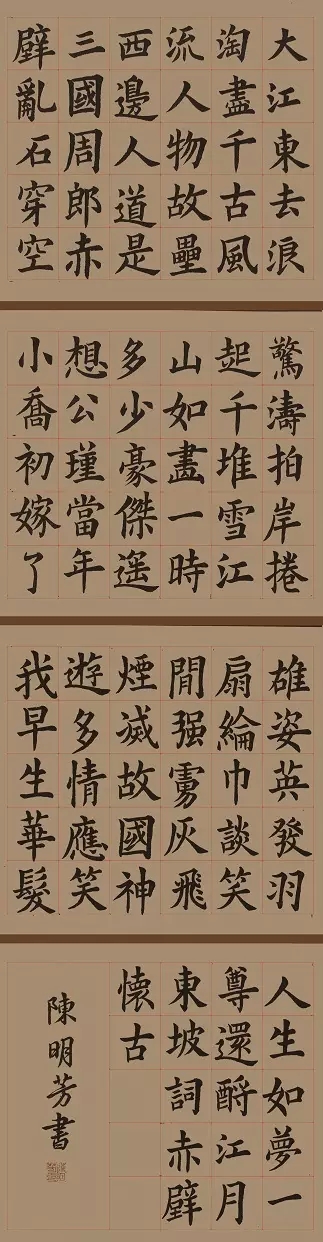 大江東去浪
淘盡千古風
流人物故壘
西邊人道是
三國周郎赤
壁亂石穿空
驚濤拍岸捲
起千堆雪江
山如畫一時
多少豪傑遥
想公瑾當年
小喬初嫁了
雄姿英發羽
扇綸巾談笑
間强虜灰飛
煙滅故國神
遊多情應笑
我早生華髮
人生如夢一
尊還酹江月
東坡詞赤壁
懷古
陳明芳書